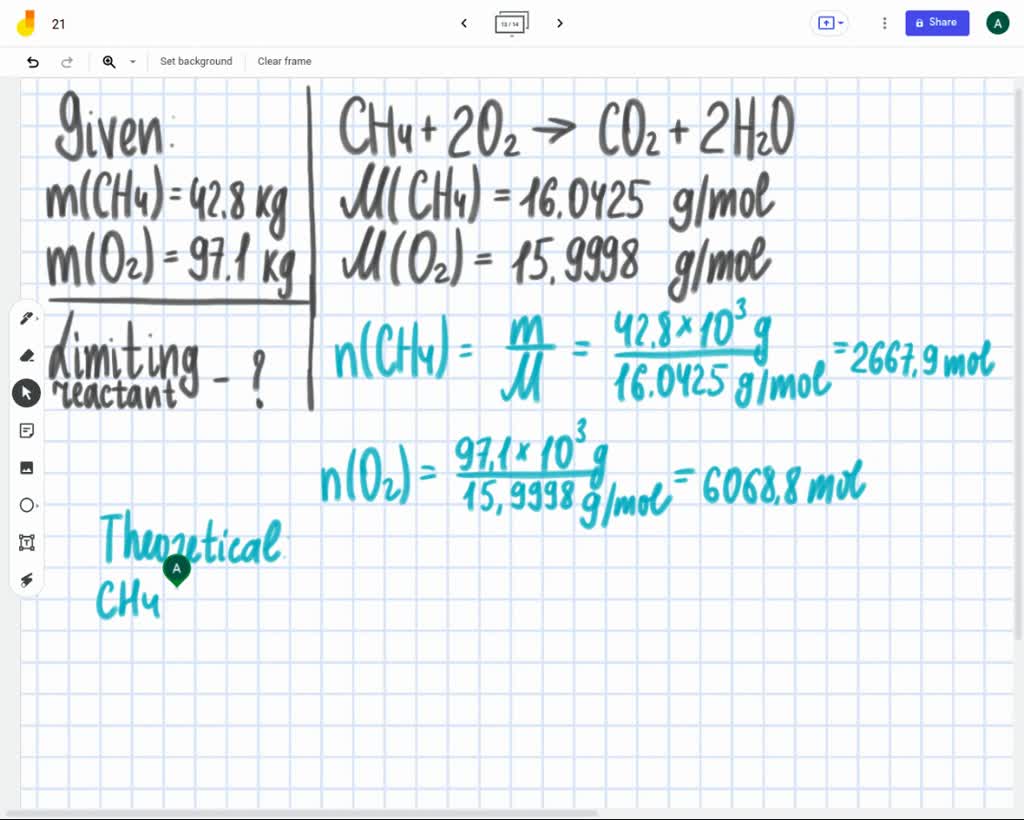 21
13 / 14
Share
A
Set background
Clear frame
Given:
m(CH4) = 42.8 kg
m(O2) = 97.1 kg
Limiting
reactant - ?
CH4 + 2O2 → CO2 + 2H2O
M(CH4) = 16.0425 g/mol
M(O2) = 15,9998 g/mol
n(CH4) = m/M = 42,8 × 10³ g / 16.0425 g/mol = 2667,9 mol
n(O2) = 97,1 × 10³ g / 15,9998 g/mol = 6068,8 mol
Theoretical:
A
CH4